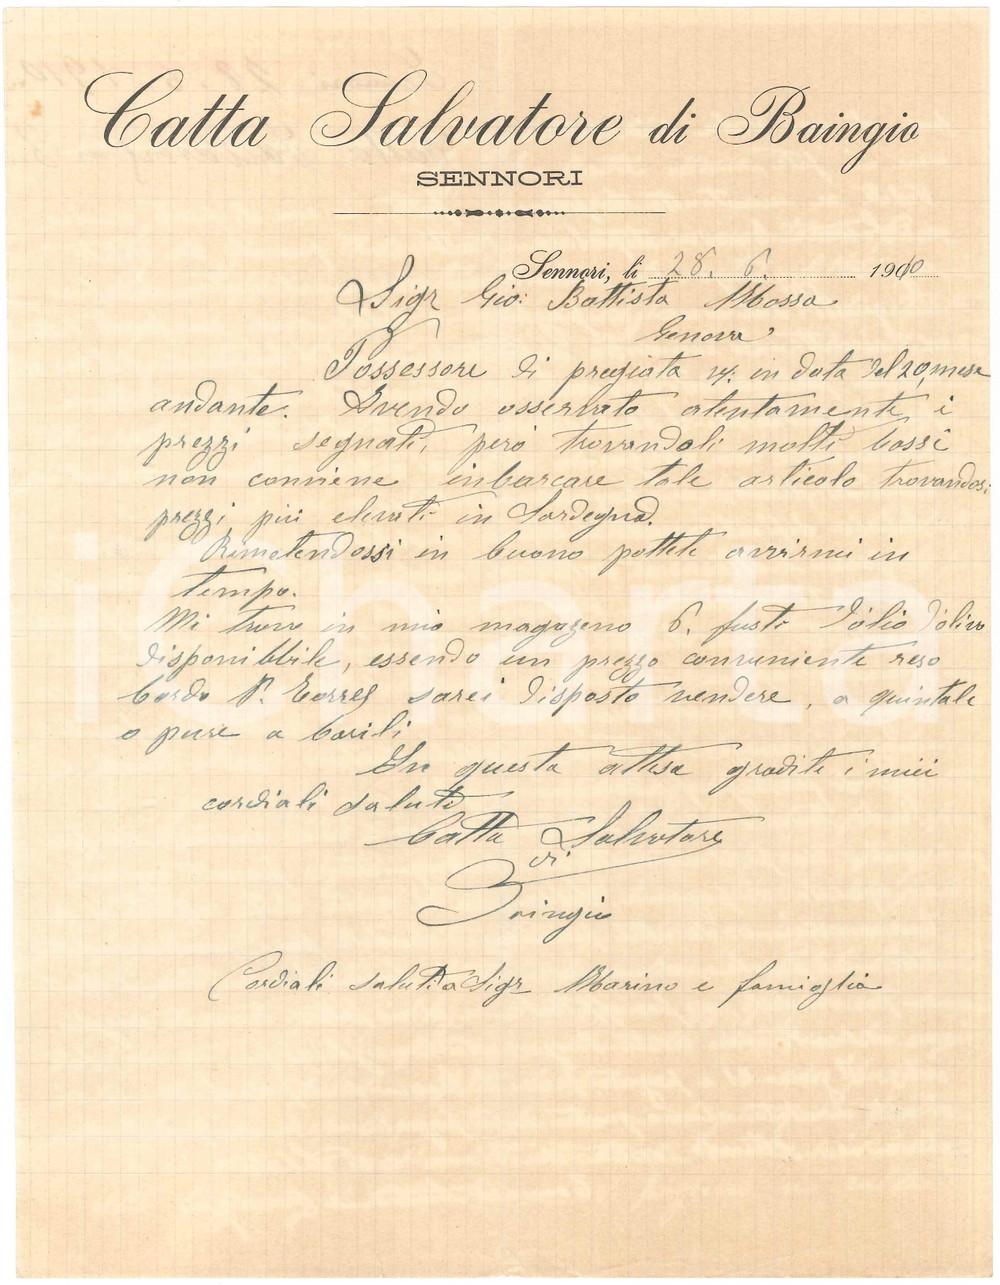 Catta Salvatore di Baingio
SENNORI
Sennori, li 28. 6. 1910
Sigr Gio: Battista Mossa
Genova
Possessore di pregiata vs. in data del 20, mese
andante. Avendo osservato atentamente i
prezzi segnati, però trovandoli molti bassi
non conviene inbarcare tale articolo trovandosi
prezzi più elevati in Sardegna.
Rimetendossi in buono pottete avvirmi in
tempo.
Mi trovo in mio magazeno 6. fusti d'olio d'olivo
disponibbile, essendo un prezzo conveniente reso
bordo P. Torres sarei disposto vendere, a quintale
o pure a barili
In questa attesa gradite i miei
cordiali saluti
Catta Salvatore
di
Baingio
Cordiali saluti a Sigr Marino e famiglia